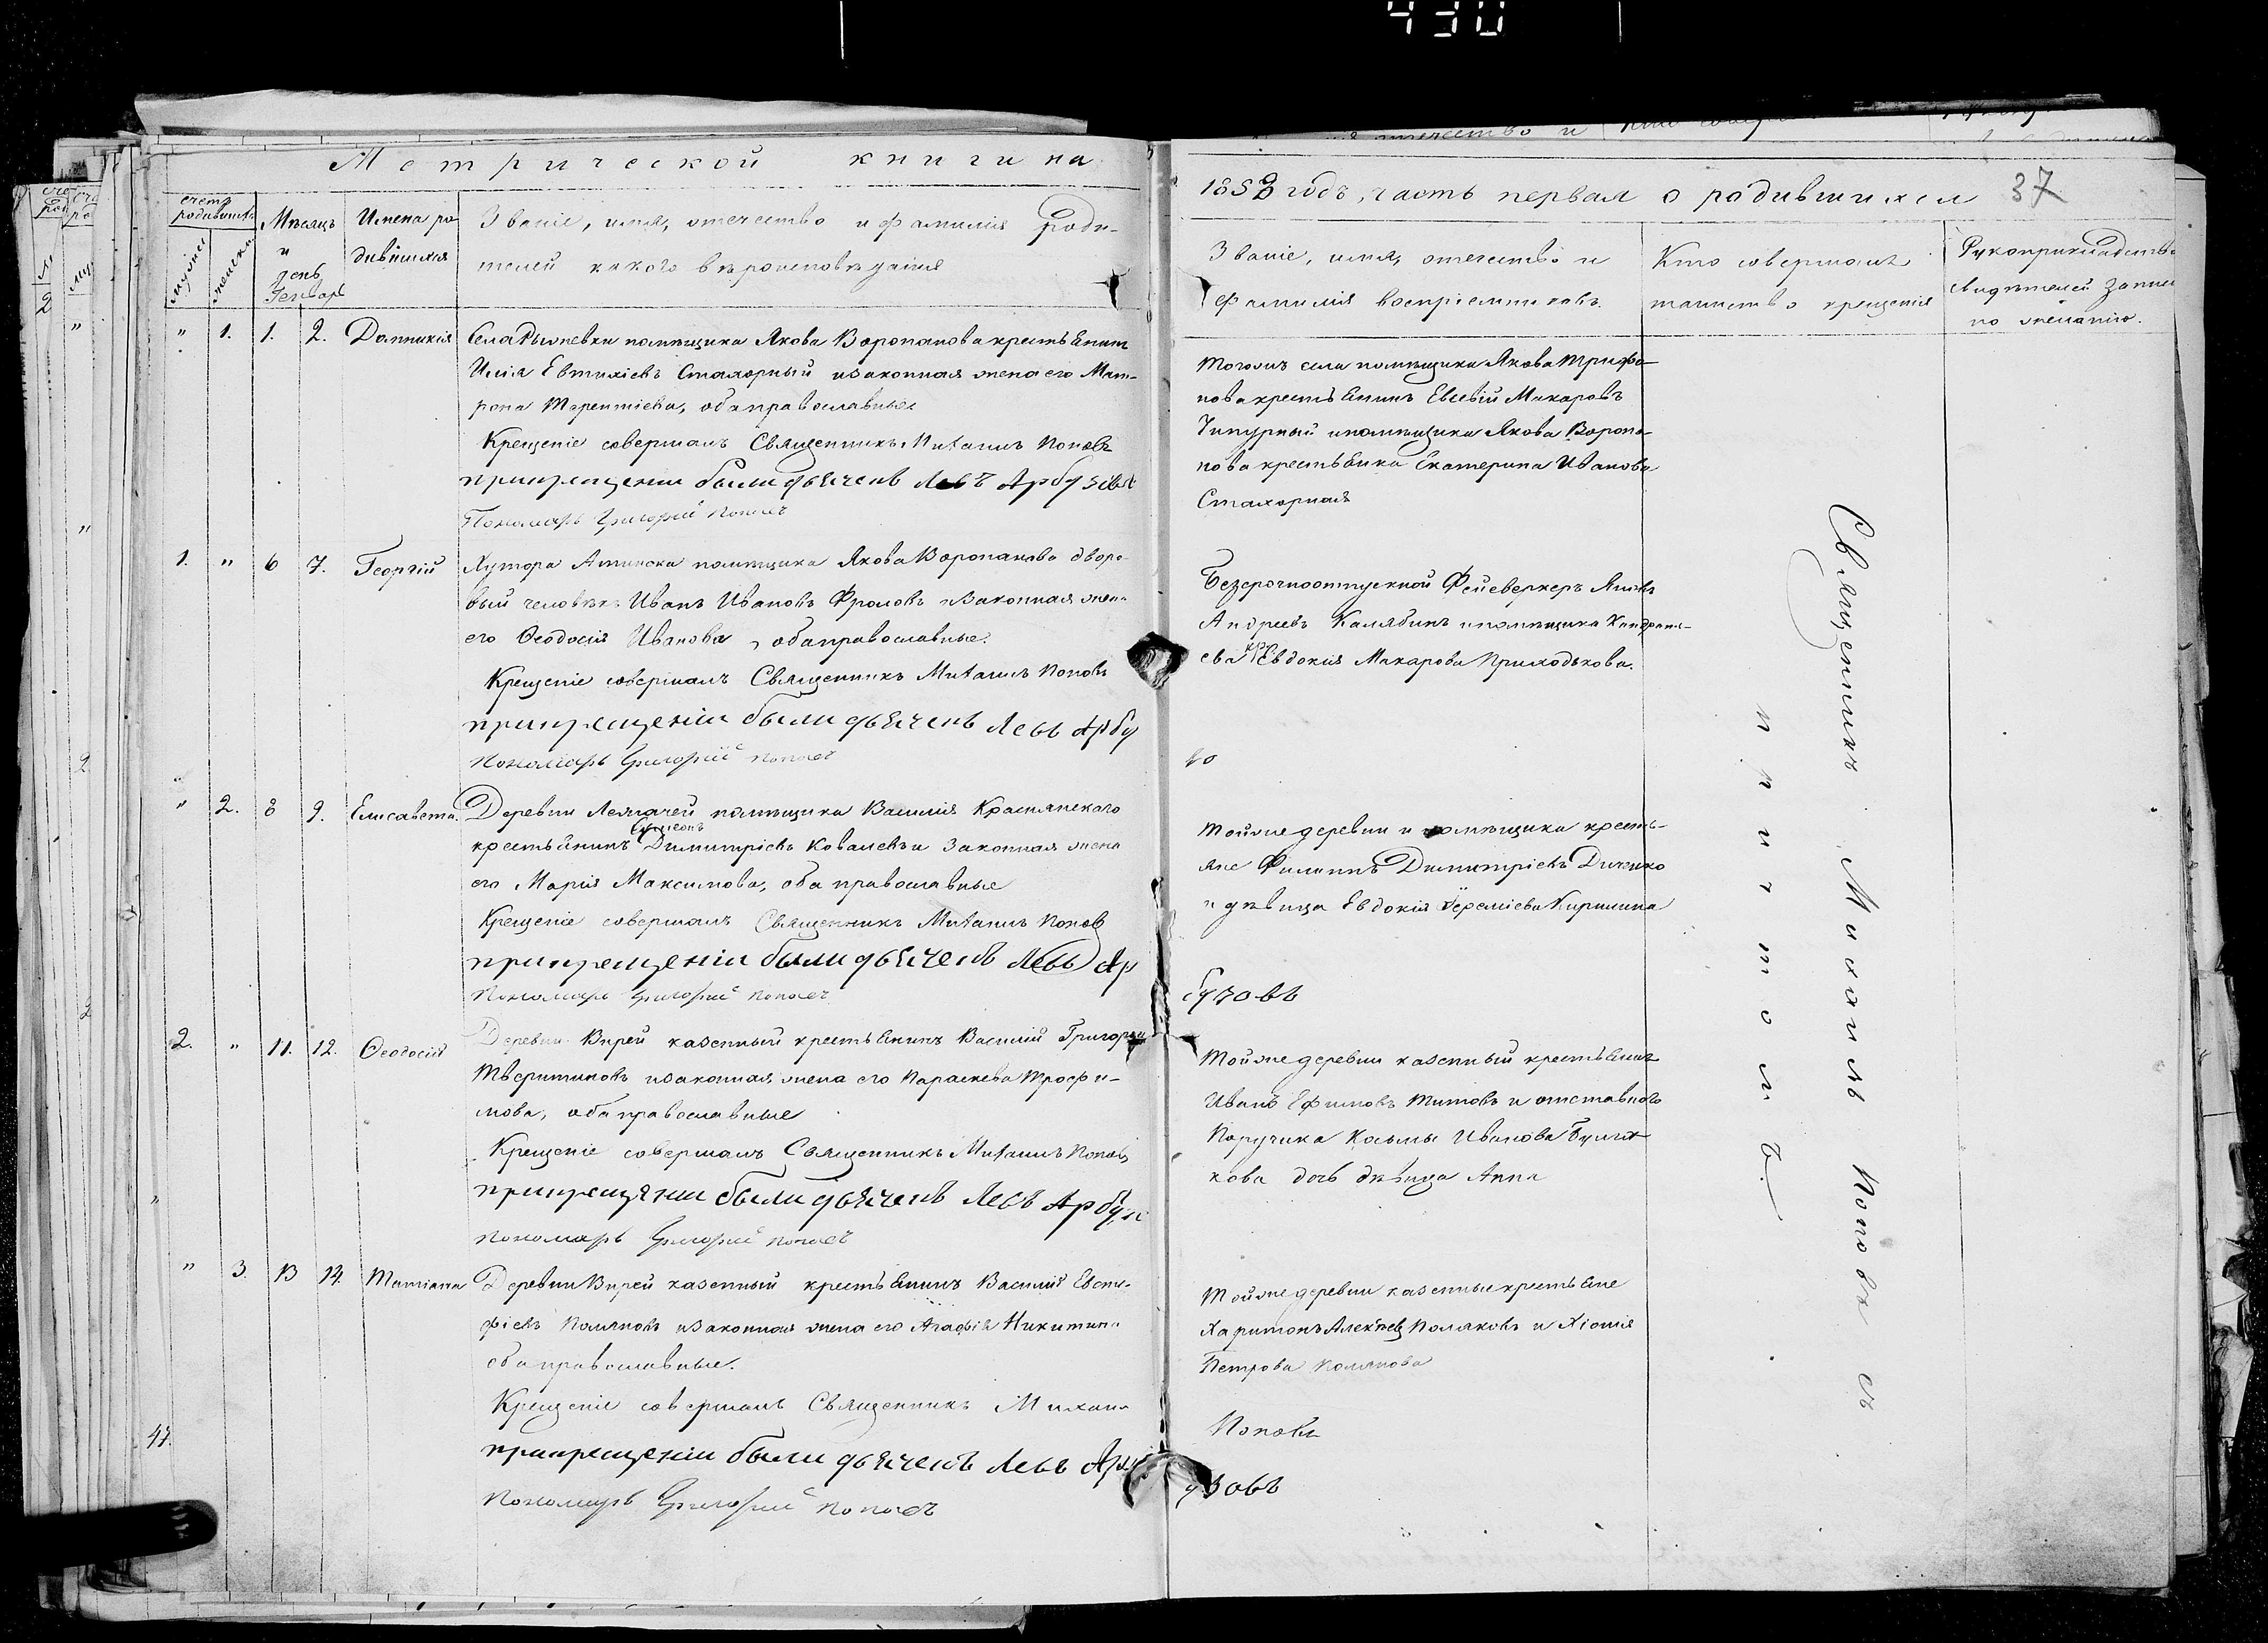 430
Метрической книги на
счетъ родившихся
мужеск
женска
Мѣсяцъ и день
Генварь
Имена родившихся
Званіе, имя, отечество и фамилія роди-
телей какого вѣроисповѣданія
" 1. 1. 2. Домникія
помѣщика Якова Воропанова крестьянинъ
Илія Евтихіевъ Стахорный и законная жена его Мат-
рона Терентіева, оба православные.
Крещеніе совершалъ Священникъ Михаилъ Поповъ
при крещеніи были дьячекъ Левъ Арбузовъ
Пономарь Григорій Поповъ
1. " 6 7. Георгій
Хутора помѣщика Якова Воропанова дворо-
вый человѣкъ Иванъ Ивановъ Фроловъ и законная жена
его Ѳеодосія Иванова, оба православные.
Крещеніе совершалъ Священникъ Михаилъ Поповъ
при крещеніи были дьячекъ Левъ Арбу
Пономарь Григорій Поповъ
" 2. 8 9. Елисавета.
Деревни помѣщика Василія Краснянскаго
Симеонъ
крестьянинъ Димитріевъ Ковалевъ и законная жена
его Марія Максимова, оба православные
Крещеніе совершалъ Священникъ Михаилъ Поповъ
при крещеніи были дьячекъ Левъ Ар
Пономарь Григорій Поповъ
2. " 11. 12. Ѳеодосій
Деревни Вирей казенный крестьянинъ Василій Григорьевъ
Тверитиновъ и законная жена его Параскева Трофи-
мова, оба православные
Крещеніе совершалъ Священникъ Михаилъ Поповъ
при крещеніи были дьячекъ Левъ Арбузо
Пономарь Григорій Поповъ
" 3. 13 14. Татіана
Деревни Вирей казенный крестьянинъ Василій Евста-
фіевъ Поляковъ и законная жена его Агафія Никитина
оба православные.
Крещеніе совершалъ Священникъ Михаилъ
при крещеніи были дьячекъ Левъ Арб
Пономарь Григорій Поповъ
1858 годъ, часть первая о родившихся 37
Званіе, имя, отечество и
фамилія воспріемниковъ.
Кто совершалъ
таинство крещенія
Рукоприкладство
свидѣтелей записи
по желанію.
Тогожъ села помѣщика Якова Трифо-
нова крестьянинъ Евсевій Макаровъ
Чипурный и помѣщика Якова Воропа-
нова крестьянка Екатерина Иванова
Стахорная
Безсрочноотпускной Фейеверкеръ Яковъ
Андреевъ Калябинъ и помѣщика Кондрать-
ева Евдокія Макарова Приходькова.
во
Той же деревни и помѣщика кресть-
яне Филиппъ Димитріевъ Диченко
и дѣвица Евдокія Іереміева Кирилина
бузовъ
Той же деревни казенный крестьянинъ
Иванъ Ефимовъ Титовъ и отставного
Поручика Косьмы Иванова
кова дочь дѣвица Анна
Той же деревни казенные крестьяне
Харитонъ Алексѣевъ Поляковъ и Хіонія
Петрова Полякова
Поповъ
узовъ
Священникъ Михаилъ Поповъ съ
причтомъ.